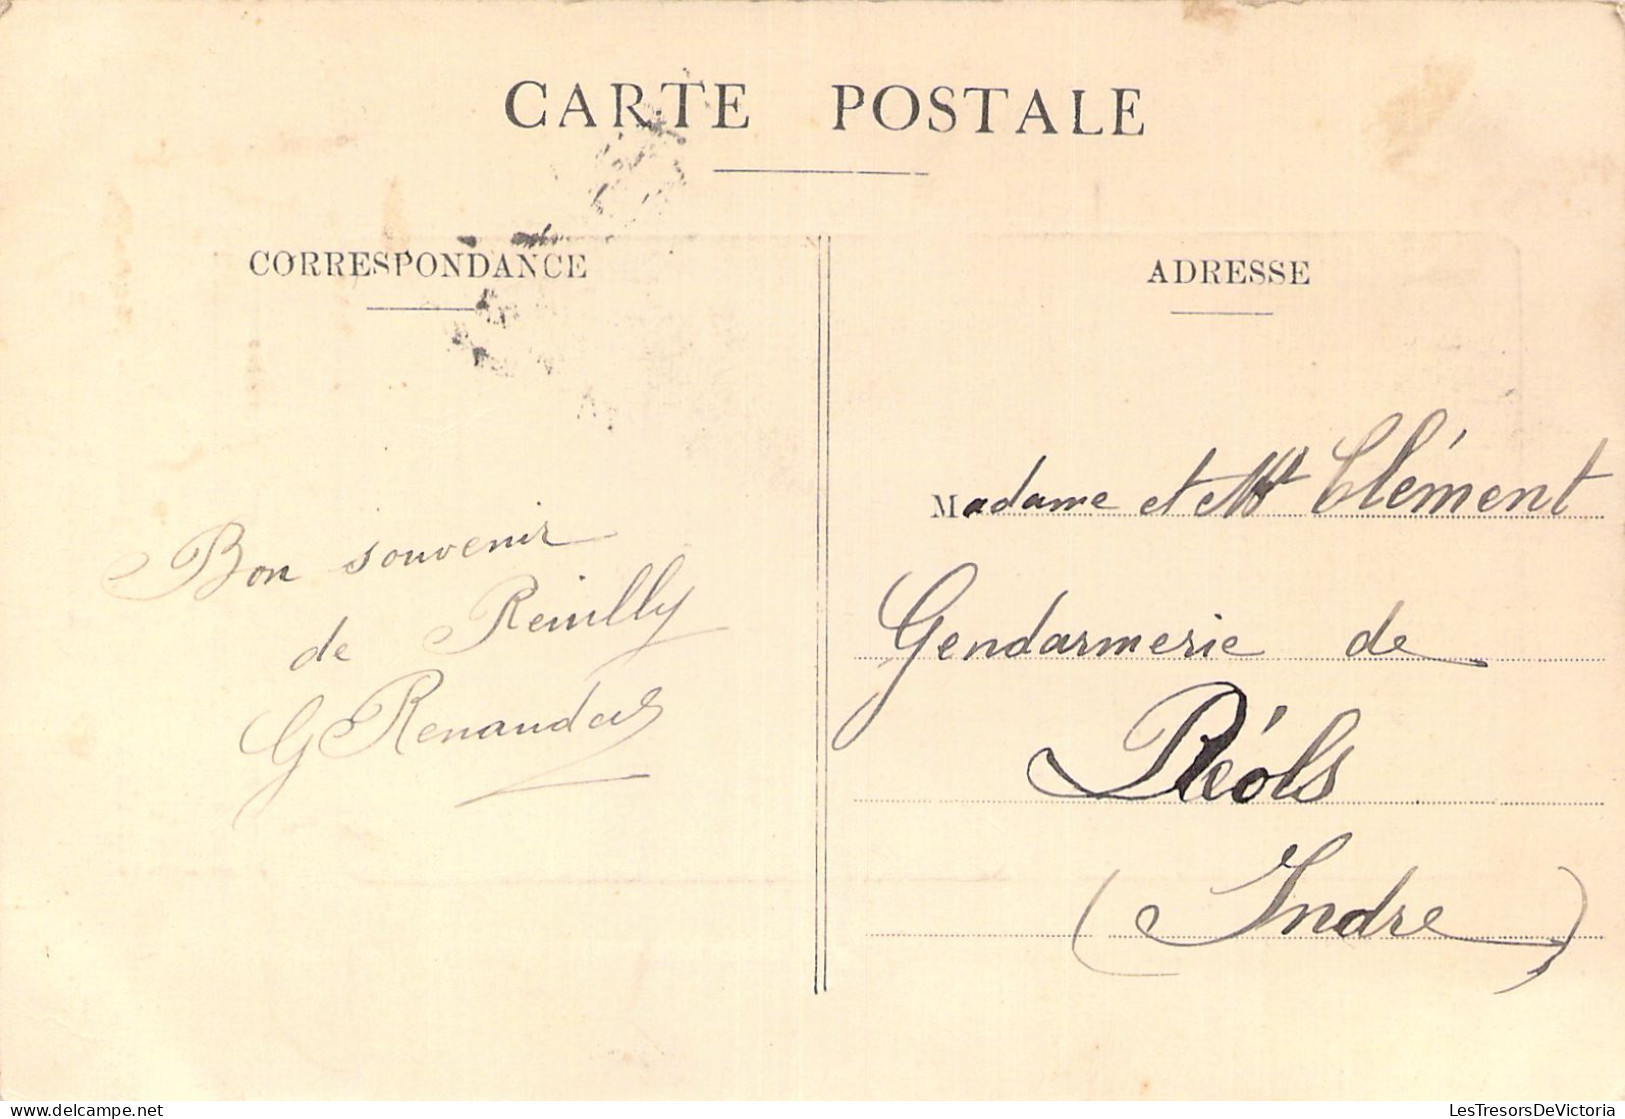 CARTE POSTALE
CORRESPONDANCE
ADRESSE
Bon souvenir
de Reuilly
G Renaud
Madame et Mr Clément
Gendarmerie de
Réols
(Indre)
LesTresorsDeVictoria